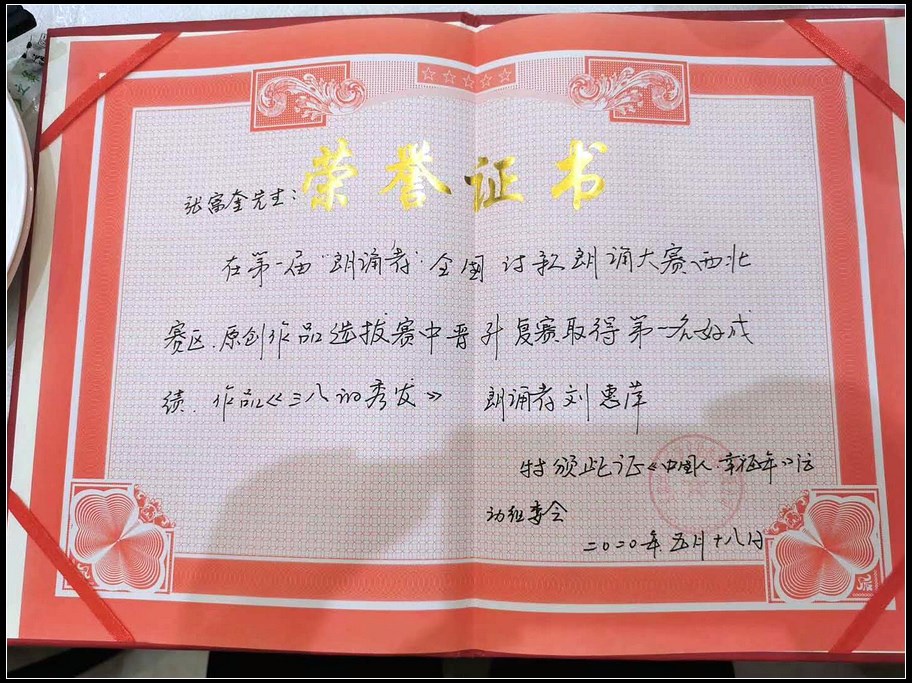 荣誉证书
张富奎先生:
在第一届“朗诵者”全国诗歌朗诵大赛西北
赛区.原创作品选拔赛中晋升复赛取得第一名好成
绩.作品《三八的秀发》 朗诵者刘惠萍
特颁此证《中国人·幸福年》活
动组委会
二0二0年五月十八日